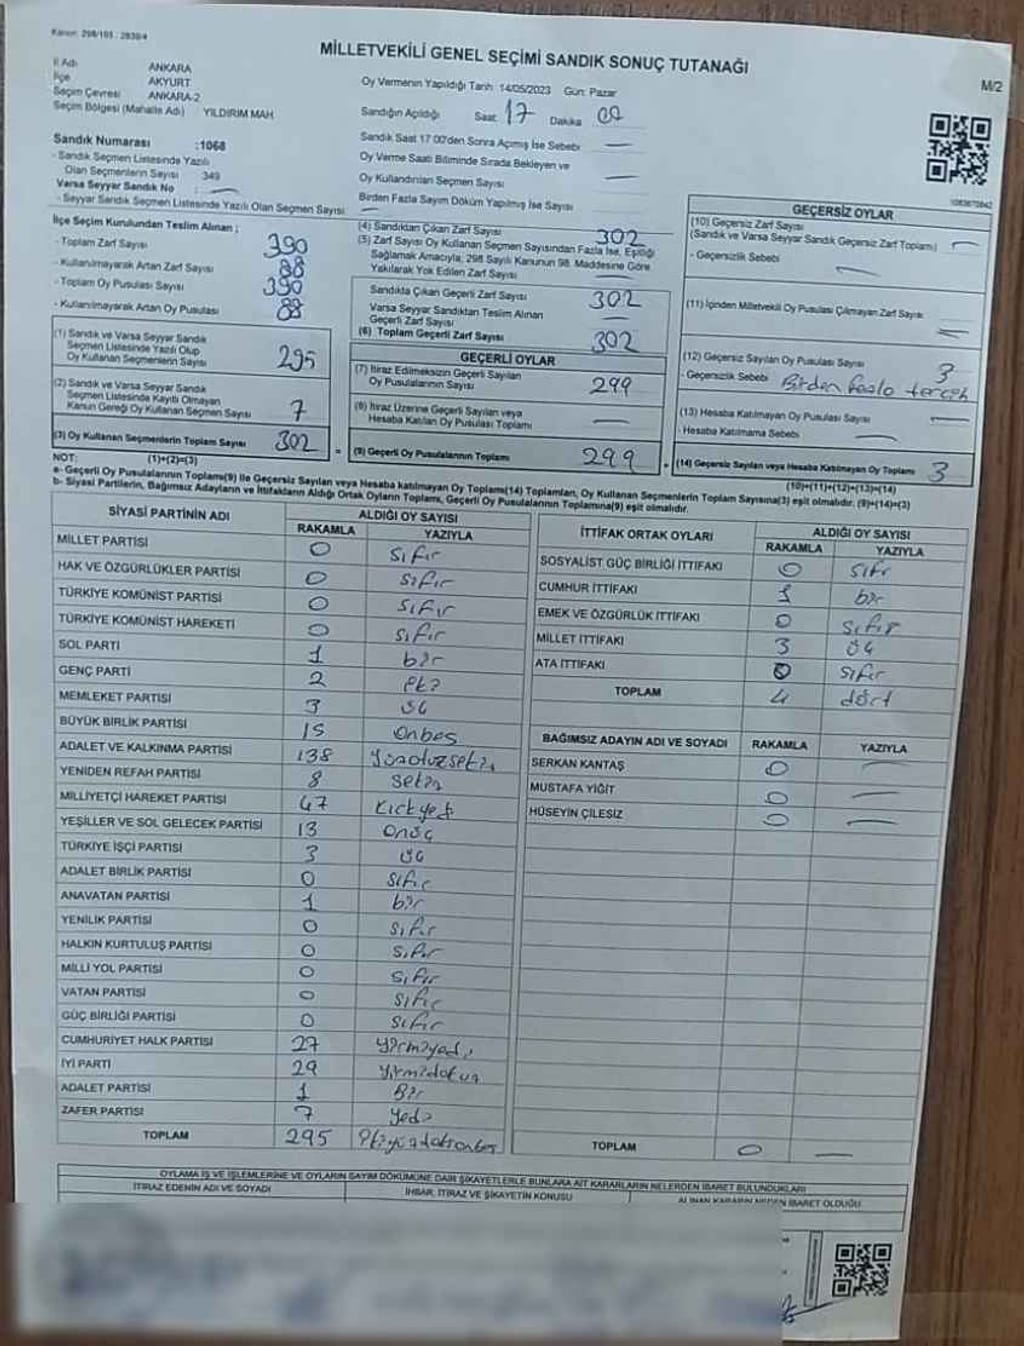 Kanun: 298/105 : 2839/4
MİLLETVEKİLİ GENEL SEÇİMİ SANDIK SONUÇ TUTANAĞI
M/2
İl Adı ANKARA
İlçe AKYURT
Seçim Çevresi ANKARA-2
Seçim Bölgesi (Mahalle Adı) YILDIRIM MAH
Sandık Numarası :1068
- Sandık Seçmen Listesinde Yazılı
Olan Seçmenlerin Sayısı : 349
Varsa Seyyar Sandık No : —
- Seyyar Sandık Seçmen Listesinde Yazılı Olan Seçmen Sayısı —
Oy Vermenin Yapıldığı Tarih 14/05/2023 Gün: Pazar
Sandığın Açıldığı Saat 17 Dakika 00
Sandık Saat 17 00'den Sonra Açımış İse Sebebi —
Oy Verme Saati Bitiminde Sırada Bekleyen ve
Oy Kullandırılan Seçmen Sayısı —
Birden Fazla Sayım Döküm Yapılmış İse Sayısı
İlçe Seçim Kurulundan Teslim Alınan ;
- Toplam Zarf Sayısı 390
- Kullanılmayarak Artan Zarf Sayısı 88
- Toplam Oy Pusulası Sayısı 390
- Kullanılmayarak Artan Oy Pusulası 88
(1) Sandık ve Varsa Seyyar Sandık
Seçmen Listesinde Yazılı Olup
Oy Kullanan Seçmenlerin Sayısı 295
(2) Sandık ve Varsa Seyyar Sandık
Seçmen Listesinde Kayıtlı Olmayan
Kanun Gereği Oy Kullanan Seçmen Sayısı 7
(3) Oy Kullanan Seçmenlerin Toplam Sayısı 302
(4) Sandıktan Çıkan Zarf Sayısı 302
(5) Zarf Sayısı Oy Kullanan Seçmen Sayısından Fazla İse, Eşitliği
Sağlamak Amacıyla, 298 Sayılı Kanunun 98. Maddesine Göre
Yakılarak Yok Edilen Zarf Sayısı —
Sandıkta Çıkan Geçerli Zarf Sayısı 302
Varsa Seyyar Sandıktan Teslim Alınan
Geçerli Zarf Sayısı —
(6) Toplam Geçerli Zarf Sayısı 302
GEÇERLİ OYLAR
(7) İtiraz Edilmeksizin Geçerli Sayılan
Oy Pusulalarının Sayısı 299
(8) İtiraz Üzerine Geçerli Sayılan veya
Hesaba Katılan Oy Pusulası Toplamı —
= (9) Geçerli Oy Pusulalarının Toplamı 299
GEÇERSİZ OYLAR
(10) Geçersiz Zarf Sayısı
(Sandık ve Varsa Seyyar Sandık Geçersiz Zarf Toplamı) —
- Geçersizlik Sebebi —
(11) İçinden Milletvekili Oy Pusulası Çıkmayan Zarf Sayısı —
(12) Geçersiz Sayılan Oy Pusulası Sayısı 3
- Geçersizlik Sebebi Birden fazla tercih
(13) Hesaba Katılmayan Oy Pusulası Sayısı —
- Hesaba Katılmama Sebebi —
+ (14) Geçersiz Sayılan veya Hesaba Katılmayan Oy Toplamı 3
NOT: (1)+(2)=(3) (10)+(11)+(12)+(13)=(14)
a- Geçerli Oy Pusulalarının Toplamı(9) ile Geçersiz Sayılan veya Hesaba katılmayan Oy Toplamı(14) Toplamları, Oy Kullanan Seçmenlerin Toplam Sayısına(3) eşit olmalıdır. (9)+(14)=(3)
b- Siyasi Partilerin, Bağımsız Adayların ve İttifakların Aldığı Ortak Oyların Toplamı, Geçerli Oy Pusulalarının Toplamına(9) eşit olmalıdır.
SİYASİ PARTİNİN ADI ALDIĞI OY SAYISI
RAKAMLA YAZIYLA
MİLLET PARTİSİ 0 sıfır
HAK VE ÖZGÜRLÜKLER PARTİSİ 0 sıfır
TÜRKİYE KOMÜNİST PARTİSİ 0 sıfır
TÜRKİYE KOMÜNİST HAREKETİ 0 sıfır
SOL PARTİ 1 bir
GENÇ PARTİ 2 iki
MEMLEKET PARTİSİ 3 üç
BÜYÜK BİRLİK PARTİSİ 15 onbeş
ADALET VE KALKINMA PARTİSİ 138 yüzotuzsekiz
YENİDEN REFAH PARTİSİ 8 sekiz
MİLLİYETÇİ HAREKET PARTİSİ 47 kırkyedi
YEŞİLLER VE SOL GELECEK PARTİSİ 13 onüç
TÜRKİYE İŞÇİ PARTİSİ 3 üç
ADALET BİRLİK PARTİSİ 0 sıfır
ANAVATAN PARTİSİ 1 bir
YENİLİK PARTİSİ 0 sıfır
HALKIN KURTULUŞ PARTİSİ 0 sıfır
MİLLİ YOL PARTİSİ 0 sıfır
VATAN PARTİSİ 0 sıfır
GÜÇ BİRLİĞİ PARTİSİ 0 sıfır
CUMHURİYET HALK PARTİSİ 27 yirmiyedi
İYİ PARTİ 29 yirmidokuz
ADALET PARTİSİ 1 Bir
ZAFER PARTİSİ 7 yedi
TOPLAM 295 ikiyüzdoksanbeş
İTTİFAK ORTAK OYLARI ALDIĞI OY SAYISI
RAKAMLA YAZIYLA
SOSYALİST GÜÇ BİRLİĞİ İTTİFAKI 0 sıfır
CUMHUR İTTİFAKI 1 bir
EMEK VE ÖZGÜRLÜK İTTİFAKI 0 sıfır
MİLLET İTTİFAKI 3 üç
ATA İTTİFAKI 0 sıfır
TOPLAM 4 dört
BAĞIMSIZ ADAYIN ADI VE SOYADI RAKAMLA YAZIYLA
SERKAN KANTAŞ 0 —
MUSTAFA YİĞİT 0 —
HÜSEYİN ÇİLESİZ 0 —
TOPLAM 0 —
OYLAMA İŞ VE İŞLEMLERİNE VE OYLARIN SAYIM DÖKÜMÜNE DAİR ŞİKAYETLERLE BUNLARA AİT KARARLARIN NELERDEN İBARET BULUNDUKLARI
İTİRAZ EDENİN ADI VE SOYADI İHBAR, İTİRAZ VE ŞİKAYETİN KONUSU ALINAN KARARIN NEDEN İBARET OLDUĞU